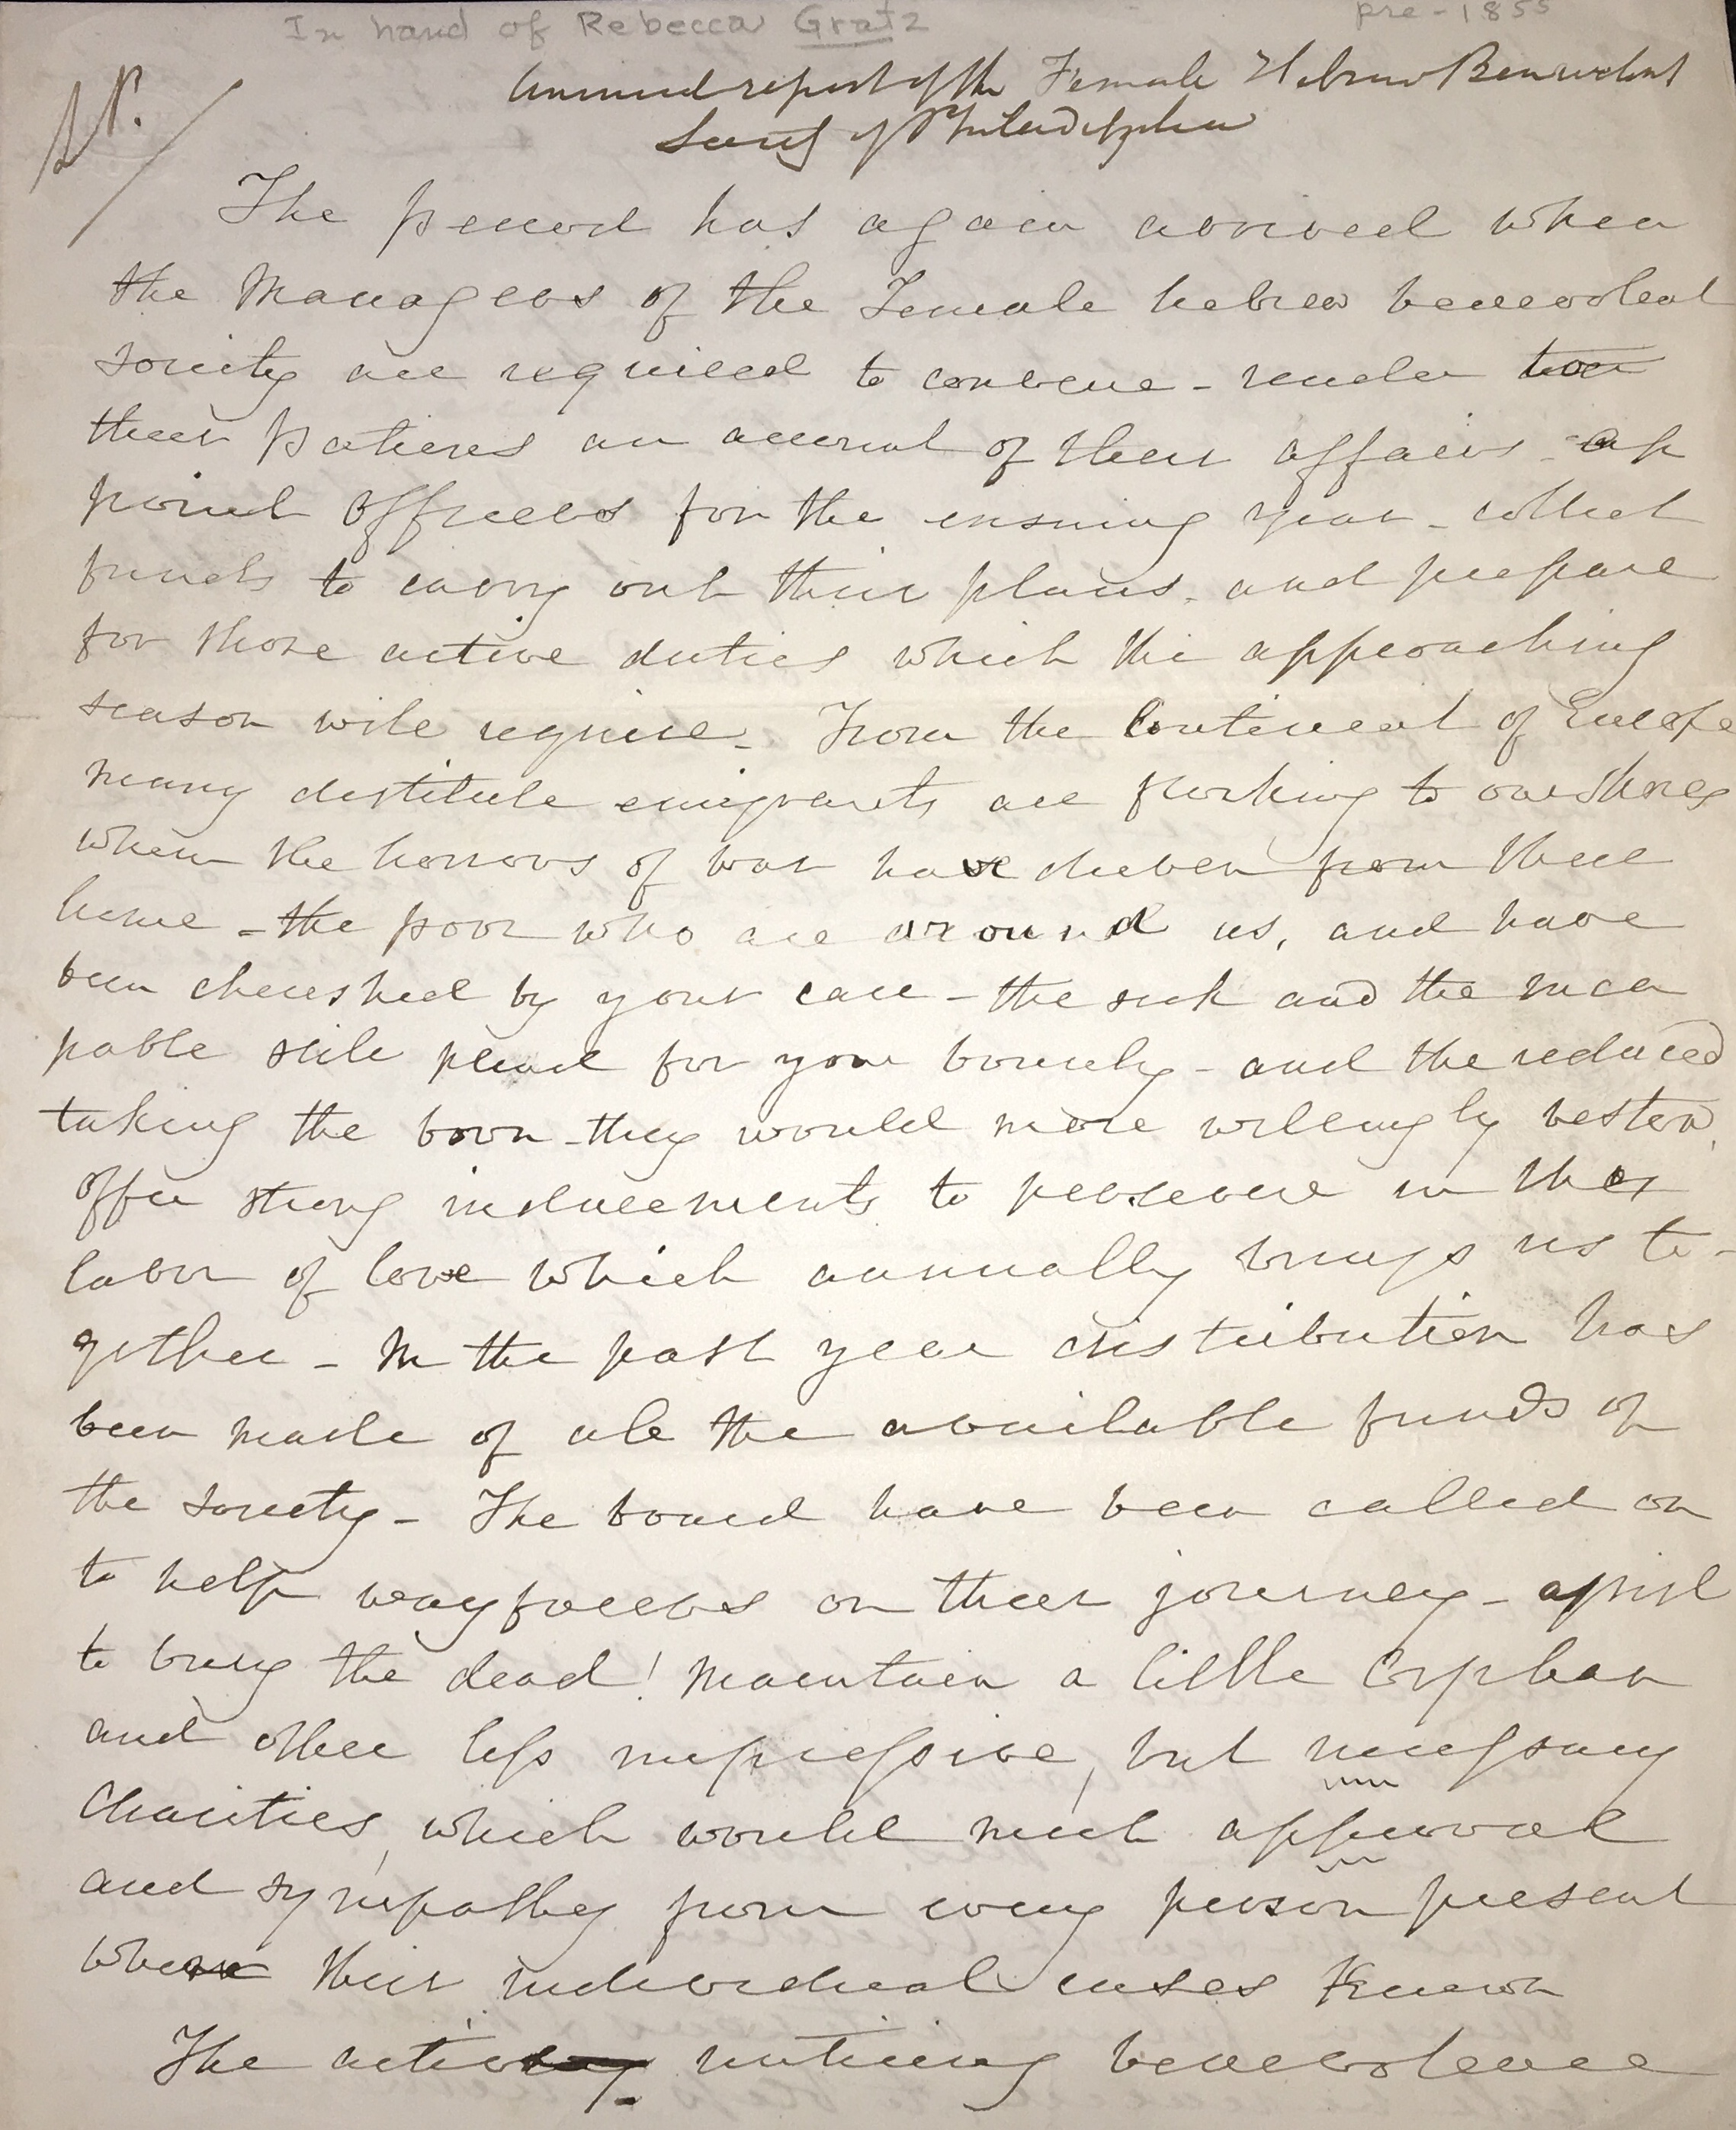 In hand of Rebecca Gratz
pre-1855
Annual report of the Female Hebrew Benevolent
Society of Philadelphia
The period has again arrived when
the Managers of the Female hebrew benevolent
society are required to convene - render
their patrons an account of their affairs - ap
point Officers for the ensuing year - collect
funds to carry out their plans, and prepare
for those active duties which the approaching
season will require - From the Continent of Europe
many destitute emigrants are flocking to our shores
whom the horrors of war have driven from their
home - the poor who are around us, and have
been cherished by your care - the sick and the inca
pable still plead for your bounty - and the reduced
taking the boon - they would more willingly bestow,
offer strong inducements to persevere in the
labor of love which annually brings us to-
gether - In the past year distribution has
been made of all the available funds of
the society - The board have been called on
to help wayfarers on their journey - assist
to bury the dead! Maintain a little Orphan
and other less impressive, but necessary
Charities, which would meet approval
and sympathy from every person present
where their individual cases known
The active untiring benevolence